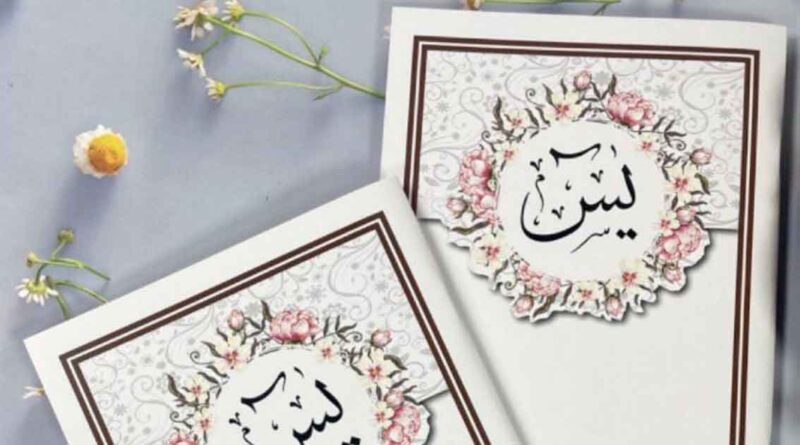 يس
يس